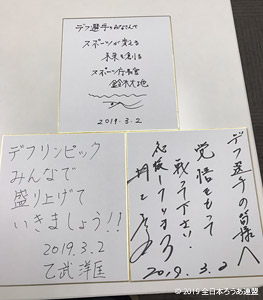 デフ選手とみなさんで
スポーツが変える
未来を創る
スポーツ庁長官
鈴木大地
2019.3.2
デフリンピック
みんなで
盛り上げて
いきましょう!!
2019.3.2
乙武 洋匡
デフ選手の皆様へ
覚悟をもって
戦って下さい
2019.3.2
© 2019 全日本ろうあ連盟